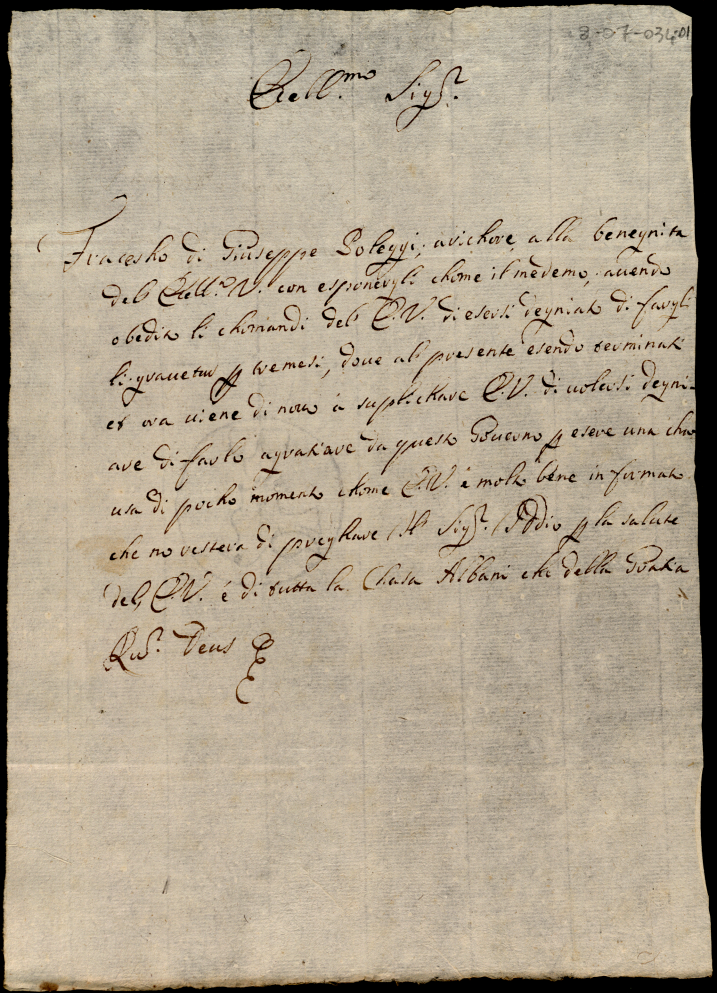 8-07-034-01
Ecell.mo Sigr.
Fracesho di Giuseppe Poleggi, arichore alla benegnita
del Ecell.a V. con esponergli chome il medemo, auendo
obedito li chomandi del E.V. di esersi degniato di fargli
li gravetur p tre mesi, doue al presente esendo terminati
et ora uiene di nouo à suplichare E.V. di uolersi degni-
are di farlo agratiare da questo Gouerno p esere una cha
usa di pocho momento chome E.V. è molto bene informato
che no restera di preghare Il Sigr. Iddio p la salute
del E.V. é di tutta la Chasa Albani che della Gratia
Qus. Deus